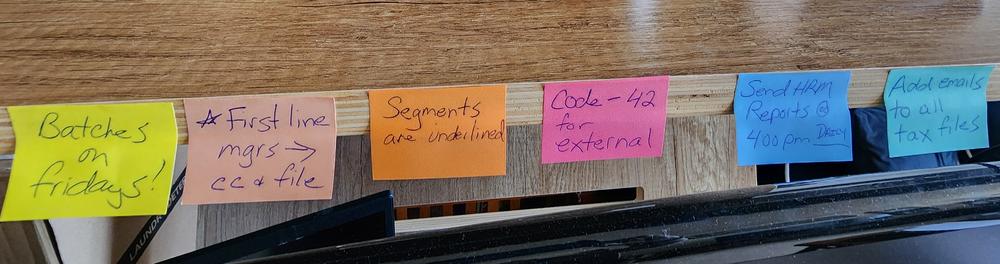 Batches
on
fridays!
* First line
mgrs →
cc & file
Segments
are underlined
Code - 42
for
external
Send HRM
Reports @
400pm DAILY
Add emails
to all
tax files
LAUNDRY DETE